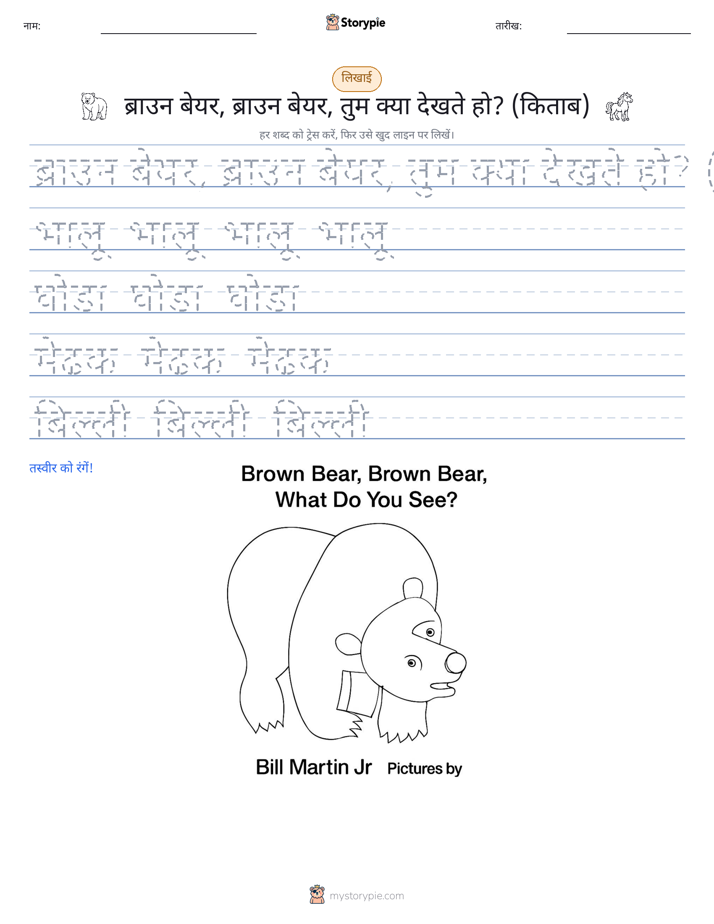 नाम:
Storypie
तारीख:
लिखाई
ब्राउन बेयर, ब्राउन बेयर, तुम क्या देखते हो? (किताब)
हर शब्द को ट्रेस करें, फिर उसे खुद लाइन पर लिखें।
ब्राउन बेयर, ब्राउन बेयर, तुम क्या देखते हो? (
भालू भालू भालू भालू
घोड़ा घोड़ा घोड़ा
मेंढक मेंढक मेंढक
बिल्ली बिल्ली बिल्ली
तस्वीर को रंगें!
Brown Bear, Brown Bear,
What Do You See?
Bill Martin Jr Pictures by
mystorypie.com